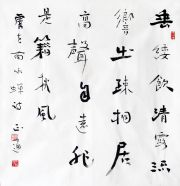 垂緌飲清露流
響出疎桐居
高聲自遠非
是籍秋風
虞世南蟬詩